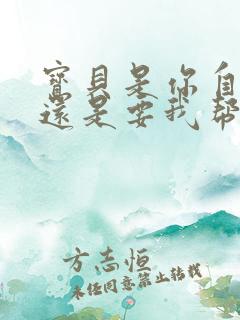 寶貝是你自
還是要我幫
方志恒
未任同意禁止轉載